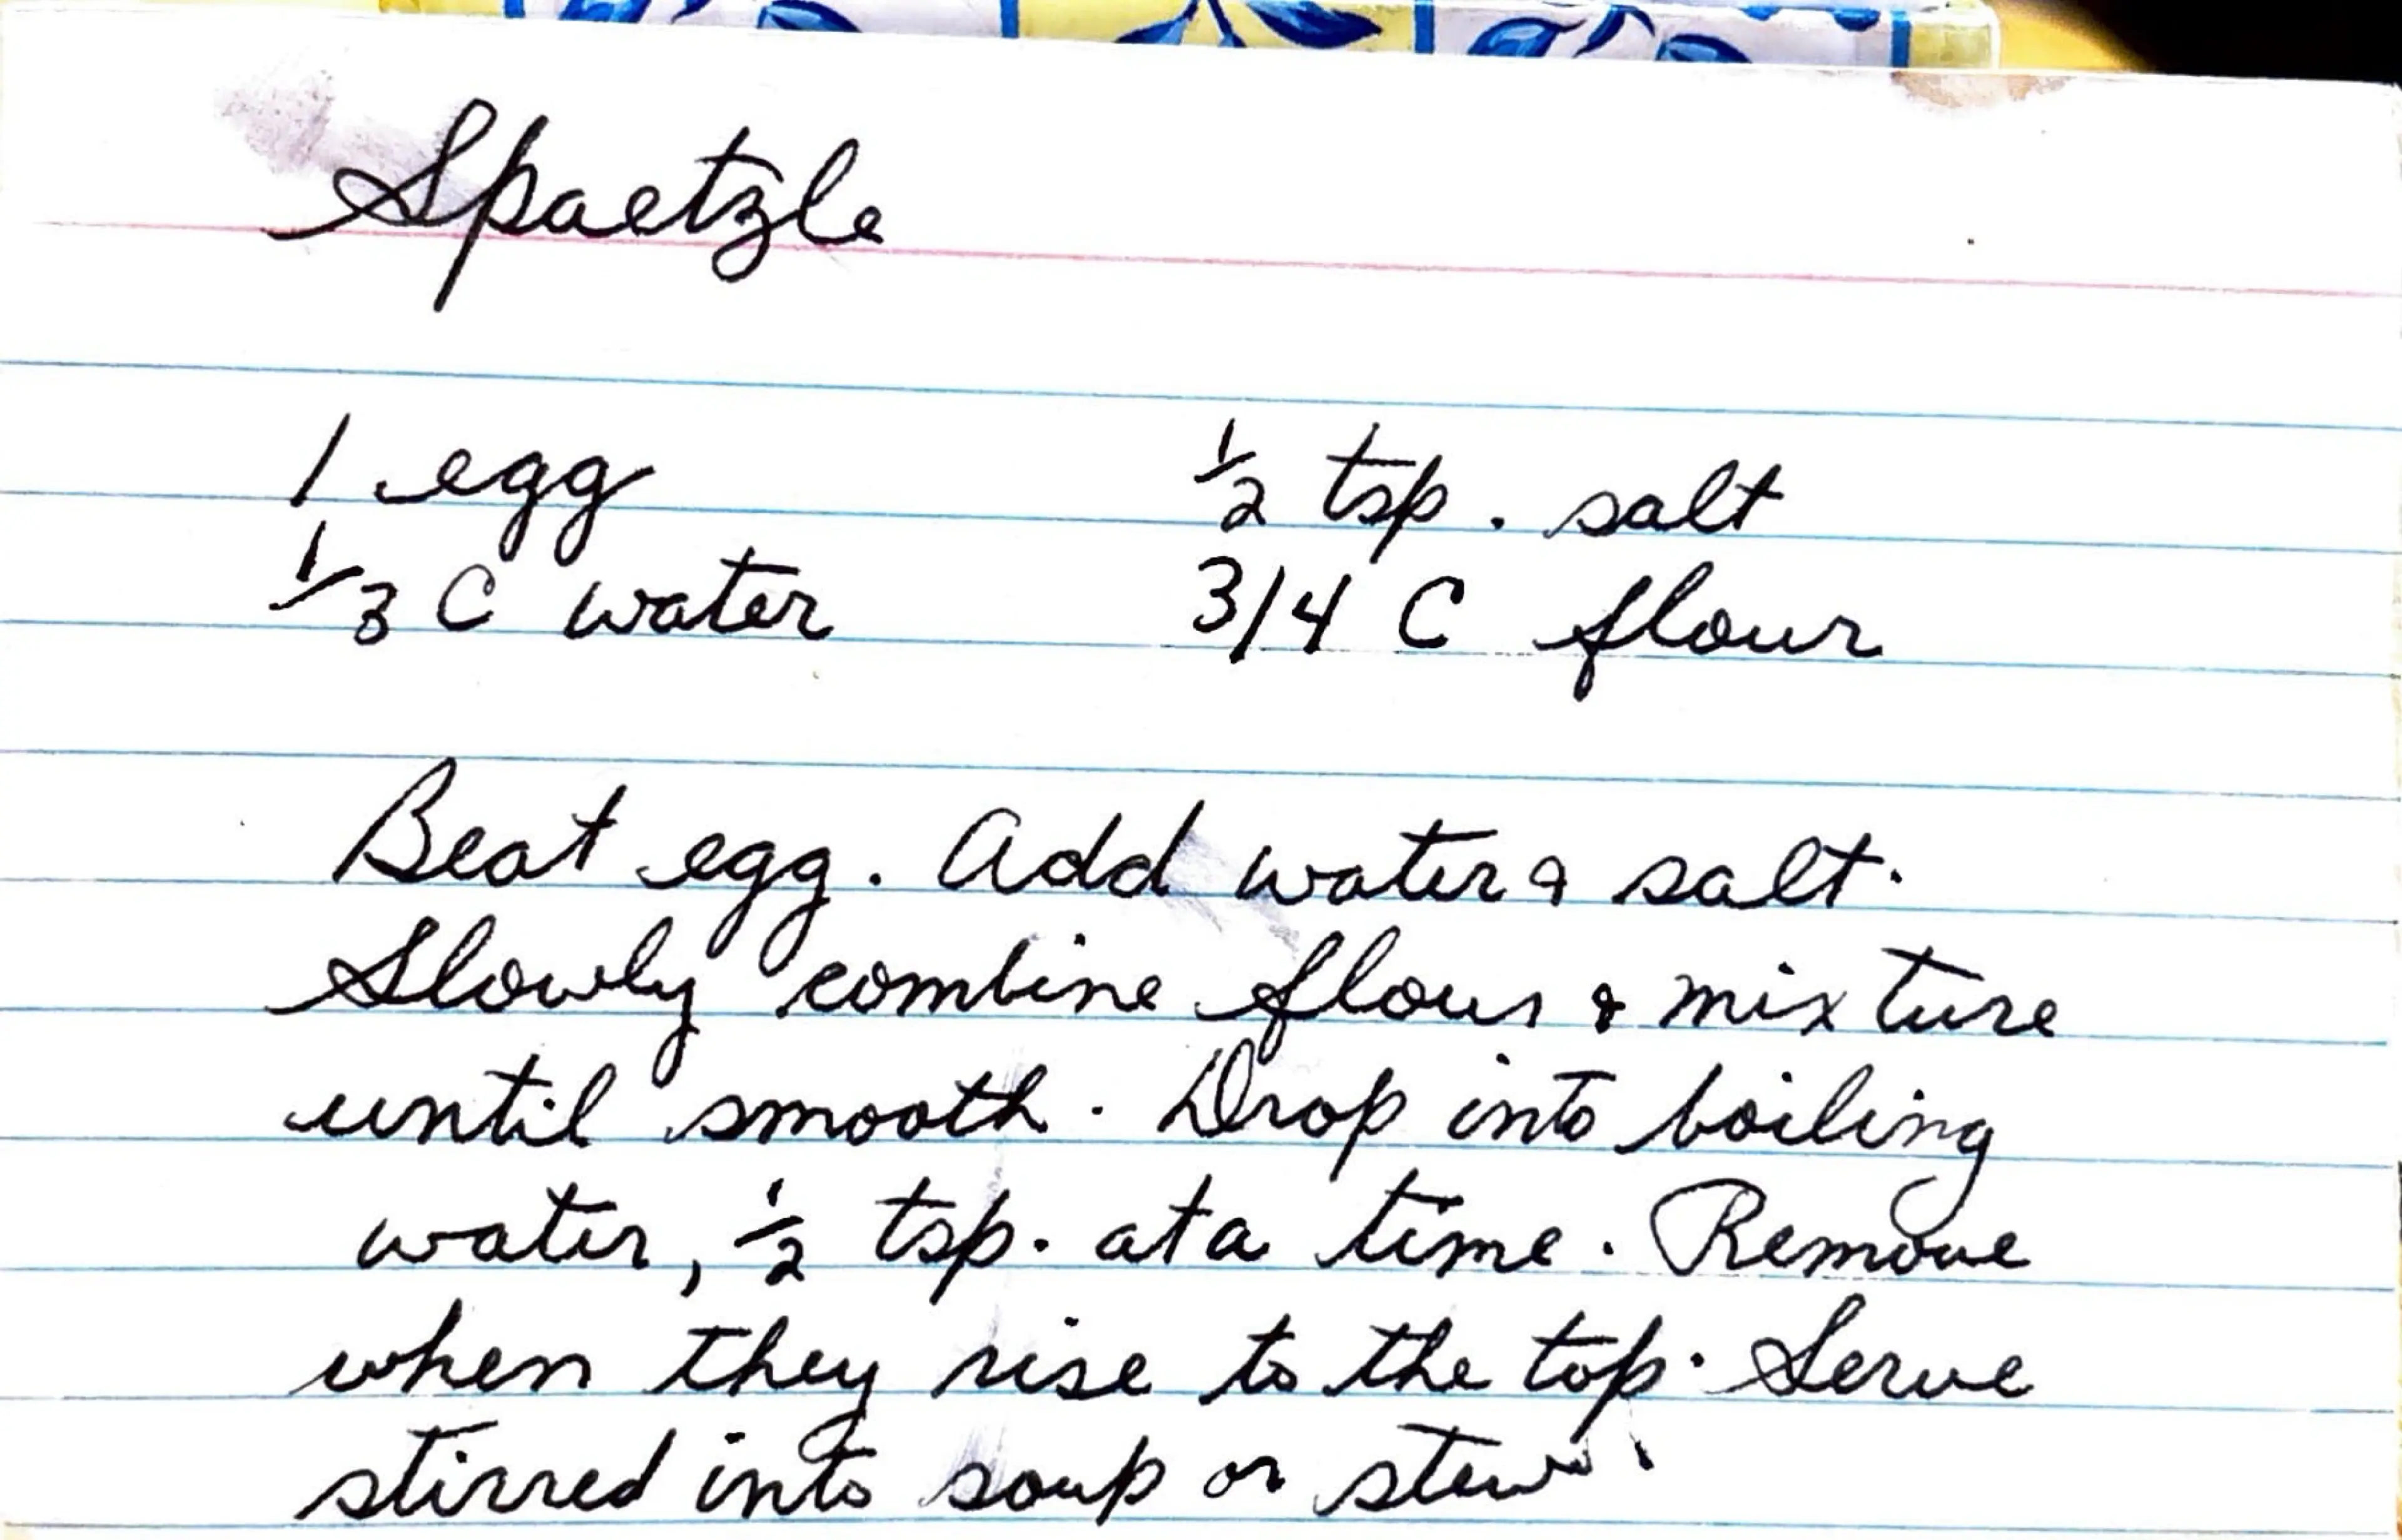 Spaetzle
1 egg ½ tsp. salt
⅓ C water 3/4 C flour
Beat egg. Add water & salt.
Slowly combine flour & mixture
until smooth. Drop into boiling
water, ½ tsp. at a time. Remove
when they rise to the top. Serve
stirred into soup or stew.